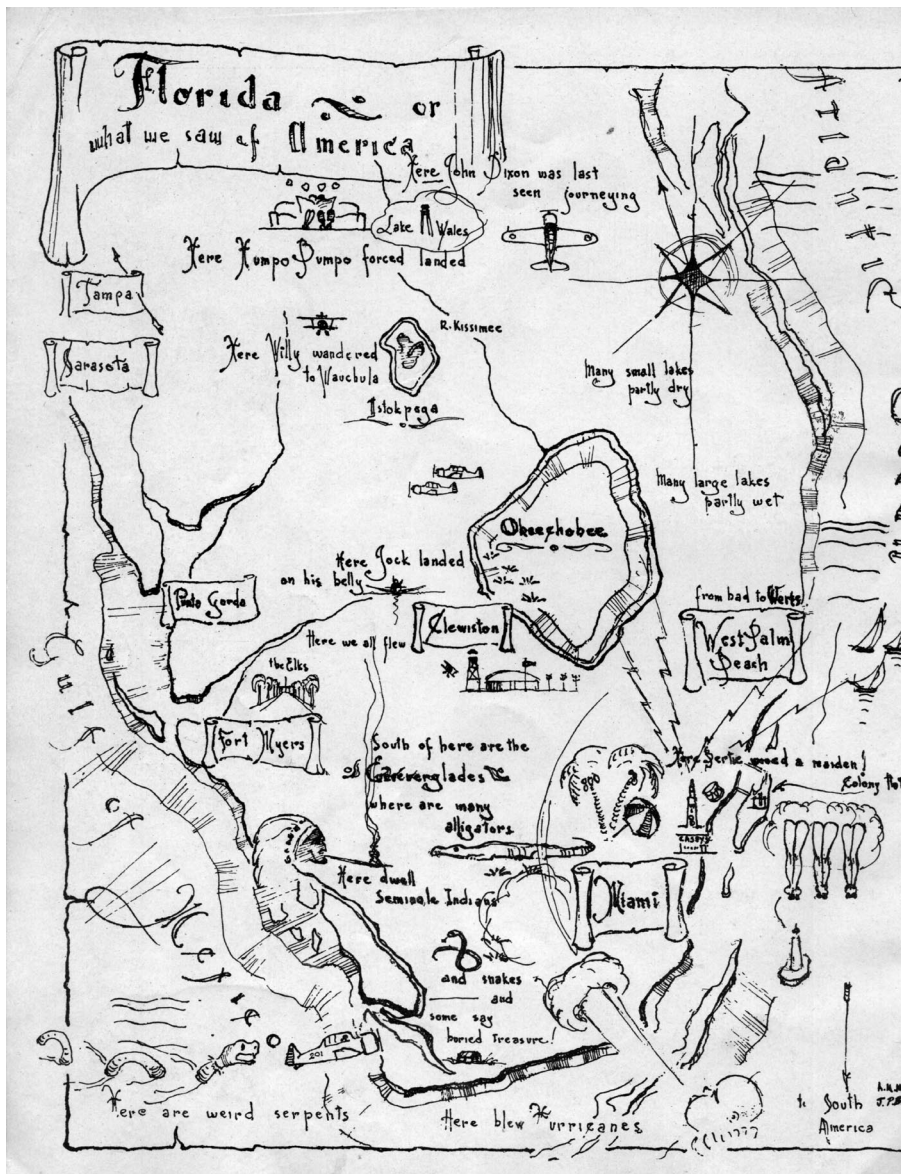 Florida or
what we saw of America
Here John Dixon was last
seen journeying
Lake Wales
Here Humpo Bumpo forced landed
Tampa
R. Kissimee
Sarasota
Here Willy wandered
to Wauchula
Istokpoga
Many small lakes
partly dry
Many large lakes
partly wet
Okeechobee
Here Jock landed
on his belly
Punta Gorda
Clewiston
from bad to Werts
West Palm
Beach
Here we all flew
the Elks
Fort Myers
South of here are the
Everglades
where are many
alligators
Here Bertie wooed a maiden!
Colony
CASEYS
Miami
Here dwell
Seminole Indians
and snakes
and
some say
buried Treasure!
Gulf
of Mexico
201
Here are weird serpents
Here blew Hurricanes
to South
America